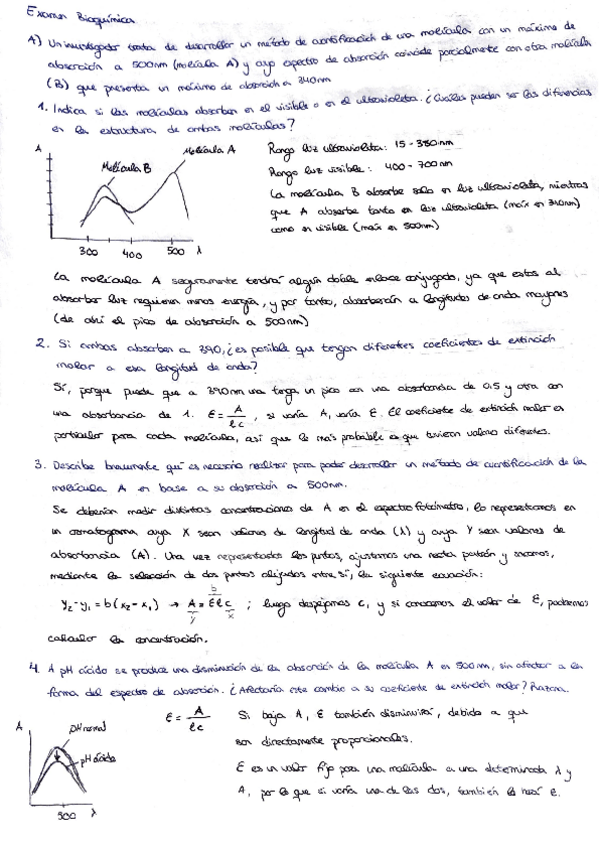 Examen Bioquímica
A) Un investigador trata de desarrollar un método de cuantificación de una molécula con un máximo de
absorción a 500nm (molécula A) y cuyo espectro de absorción coincide parcialmente con otra molécula
(B) que presenta un máximo de absorción a 340nm
1. Indica si las moléculas absorben en el visible o en el ultravioleta. ¿Cuáles pueden ser las diferencias
en la estructura de ambas moléculas?
A
Molécula B
Molécula A
300 400 500 λ
Rango luz ultravioleta: 15-380nm
Rango luz visible: 400-700nm
La molécula B absorbe solo en luz ultravioleta, mientras
que A absorbe tanto en luz ultravioleta (máx en 340nm)
como en visible (máx en 500nm)
La molécula A seguramente tendrá algún doble enlace conjugado, ya que estos al
absorber luz requieren menos energía, y por tanto, absorberán a longitudes de onda mayores
(de ahí el pico de absorción a 500nm)
2. Si ambas absorben a 340, ¿es posible que tengan diferentes coeficientes de extinción
molar a esa longitud de onda?
Sí, porque puede que a 340nm una tenga un pico con una absorbancia de 0,5 y otra con
una absorbancia de 1. ε = A / lc, si varía A, varía ε. El coeficiente de extinción molar es
particular para cada molécula, así que lo más probable es que tuvieran valores diferentes.
3. Describe brevemente qué es necesario realizar para poder desarrollar un método de cuantificación de la
molécula A en base a su absorción a 500nm.
Se deberían medir distintas concentraciones de A en el espectrofotómetro, lo representamos en
un cromatograma cuya X sean valores de longitud de onda (λ) y cuya Y sean valores de
absorbancia (A). Una vez representados los puntos, ajustamos una recta patrón y sacamos,
mediante la selección de dos puntos alejados entre sí, la siguiente ecuación:
y₂-y₁ = b(x₂-x₁) → A = εlc ; luego despejamos c, y si conocemos el valor de ε, podremos
calcular la concentración.
4. A pH ácido se produce una disminución de la absorción de la molécula A en 500nm, sin afectar a la
forma del espectro de absorción. ¿Afectaría este cambio a su coeficiente de extinción molar? Razona.
A
pH normal
pH ácido
500 λ
ε = A / lc
Si baja A, ε también disminuirá, debido a que
son directamente proporcionales.
ε es un valor fijo para una molécula a una determinada λ y
A, por lo que si varía una de las dos, también lo hará ε.